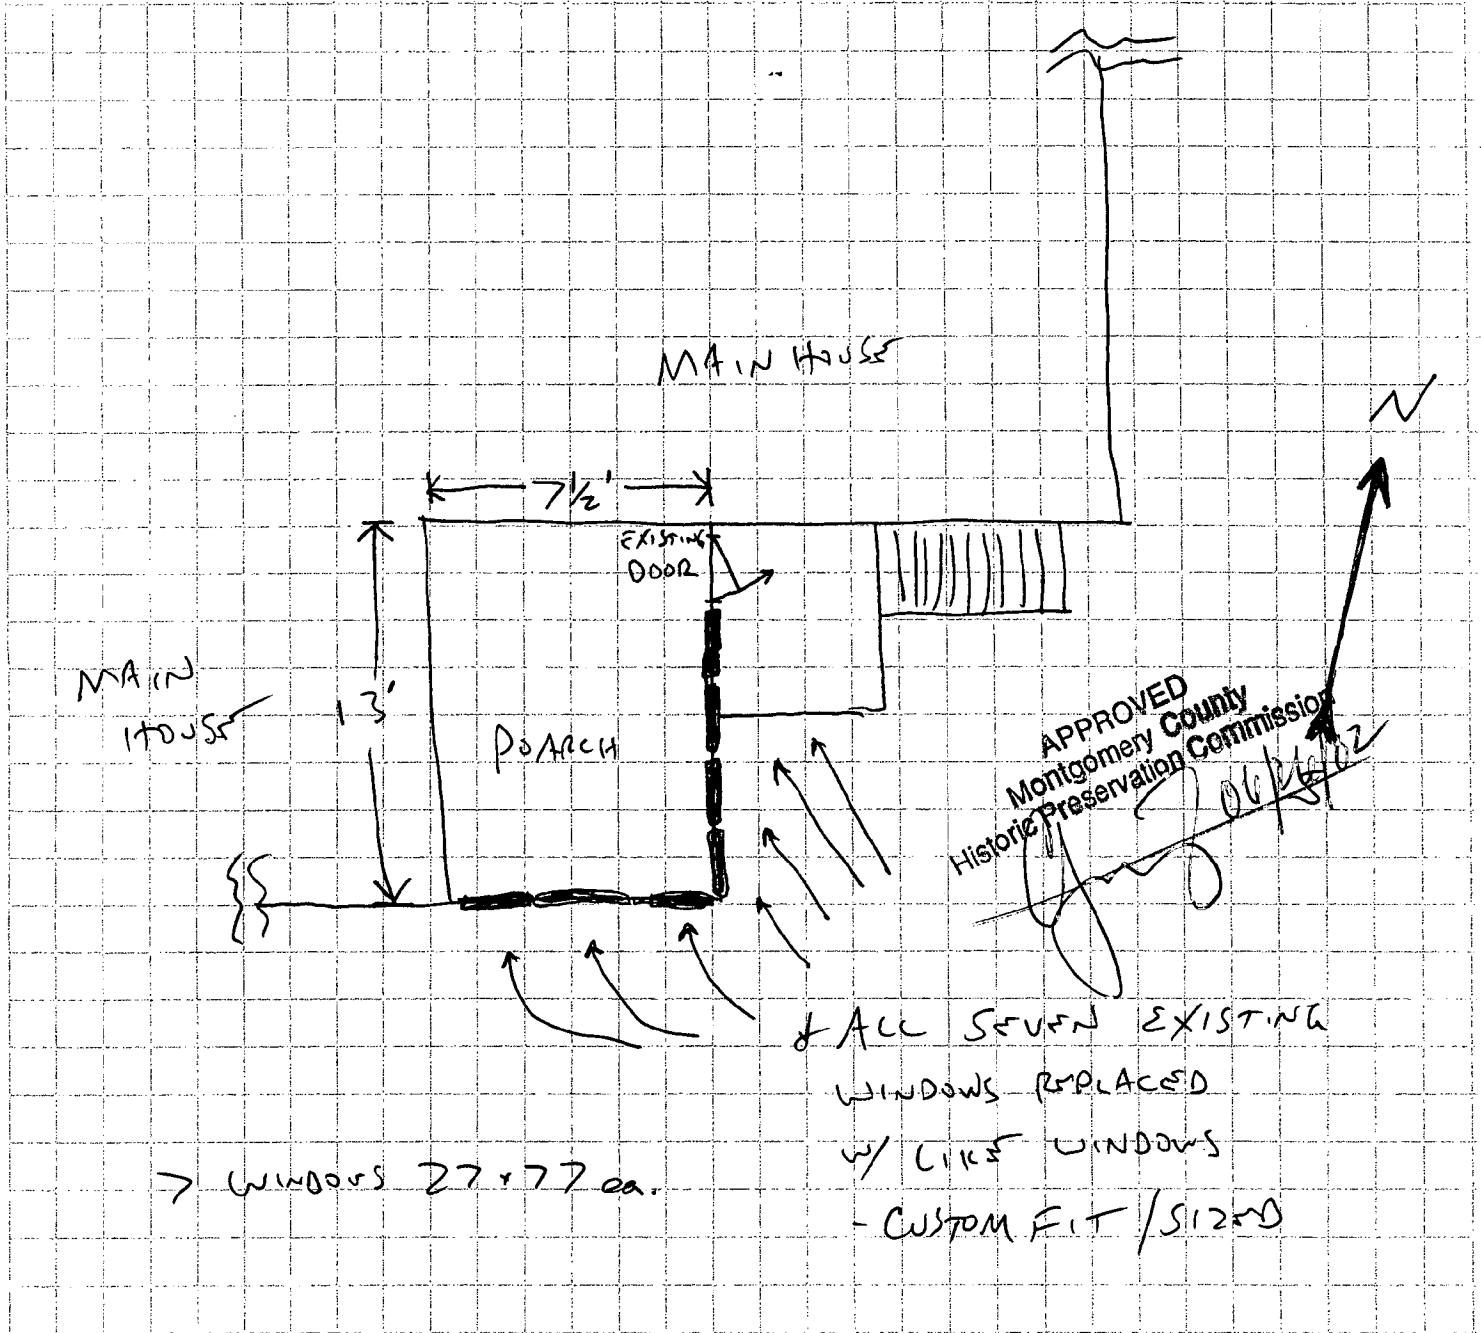 MAIN HOUSE
N
7½'
EXISTING
DOOR
MAIN
HOUSE
13'
POARCH
APPROVED
Montgomery County
Historic Preservation Commission
06/26/02
* ALL SEVEN EXISTING
WINDOWS REPLACED
W/ LIKE WINDOWS
- CUSTOM FIT / SIZED
7 WINDOWS 27x77 ea.